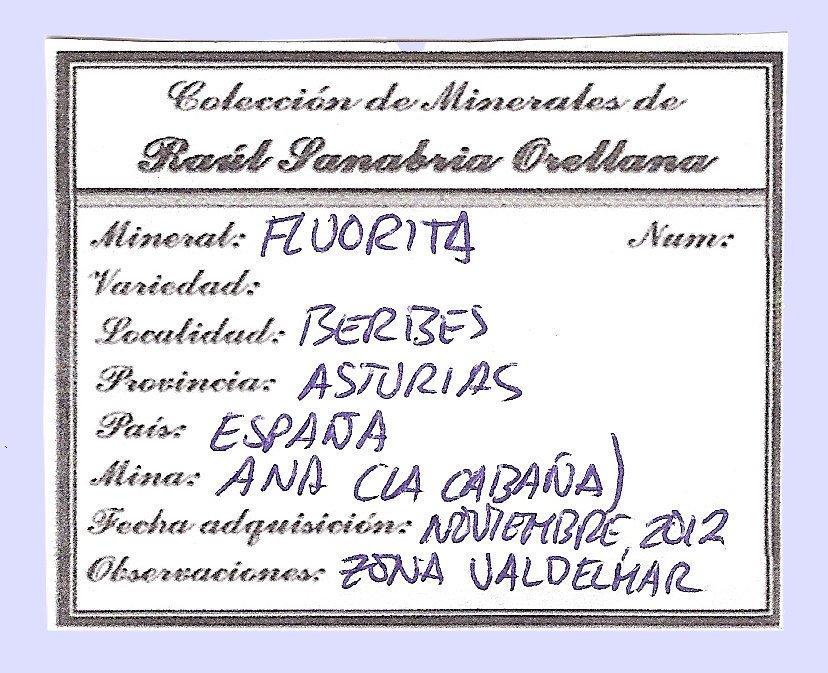 Colección de Minerales de
Raúl Sanabria Orellana
Mineral: FLUORITA Num:
Variedad:
Localidad: BERBES
Provincia: ASTURIAS
País: ESPAÑA
Mina: ANA (LA CABAÑA)
Fecha adquisición: NOVIEMBRE, 2012
Observaciones: ZONA VALDELMAR